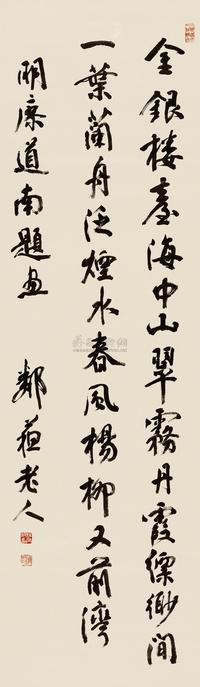 金銀樓臺海中山翠霧丹霞縹緲間
一葉蘭舟泛煙水春風楊柳又前灣
明廉道南題畫 鄰蘇老人